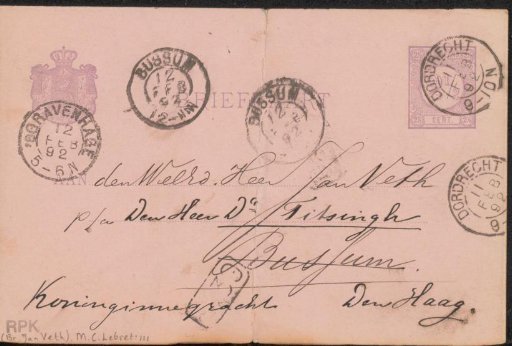 BRIEFKAART
CENT.
DORDRECHT
11 FEB 92
9-10N
BUSSUM
12 FEB 92
BUSSUM
12
92
'SGRAVENHAGE
12 FEB 92
5-6N
DORDRECHT
11 FEB 92
AAN den Weled. Heer Jan Veth
p/a Den Heer Ds Titsingh
Bussum.
Koninginnegracht Den Haag.
RPK
(Br. Jan Veth), M.C. Lebret:111